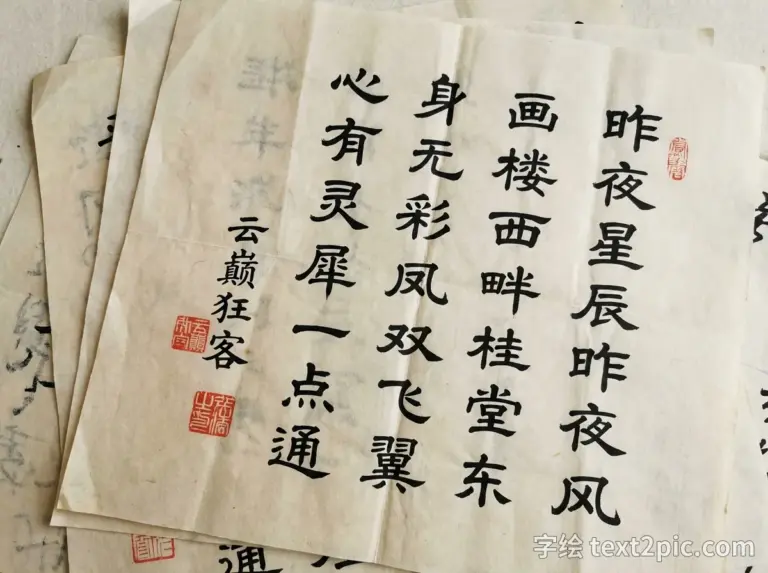 昨夜星辰昨夜风
画楼西畔桂堂东
身无彩凤双飞翼
心有灵犀一点通
云巅狂客
通
字绘 text2pic.com